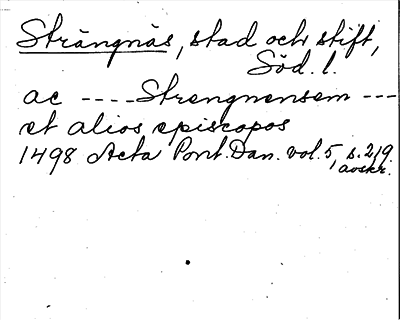 Strängnäs, stad och stift,
Söd. l.
ac ---- Strengnensem ---
et alios episcopos
1498 Acta Pont. Dan. vol. 5, s. 219.
avskr.